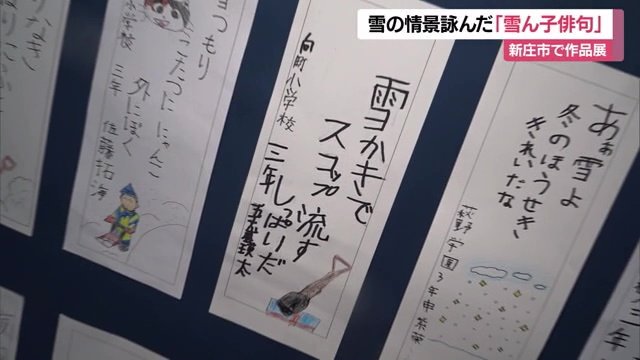 雪の情景詠んだ「雪ん子俳句」
新庄市で作品展
あぁ雪よ
冬のほうせき
きれいだな
萩野学園3年
雪かきで
スコップ流す
しっぱいだ
向町小学校
三年
つもり
こたつににゃんこ
外にぼく
小学校
三年
佐藤拓海
三年